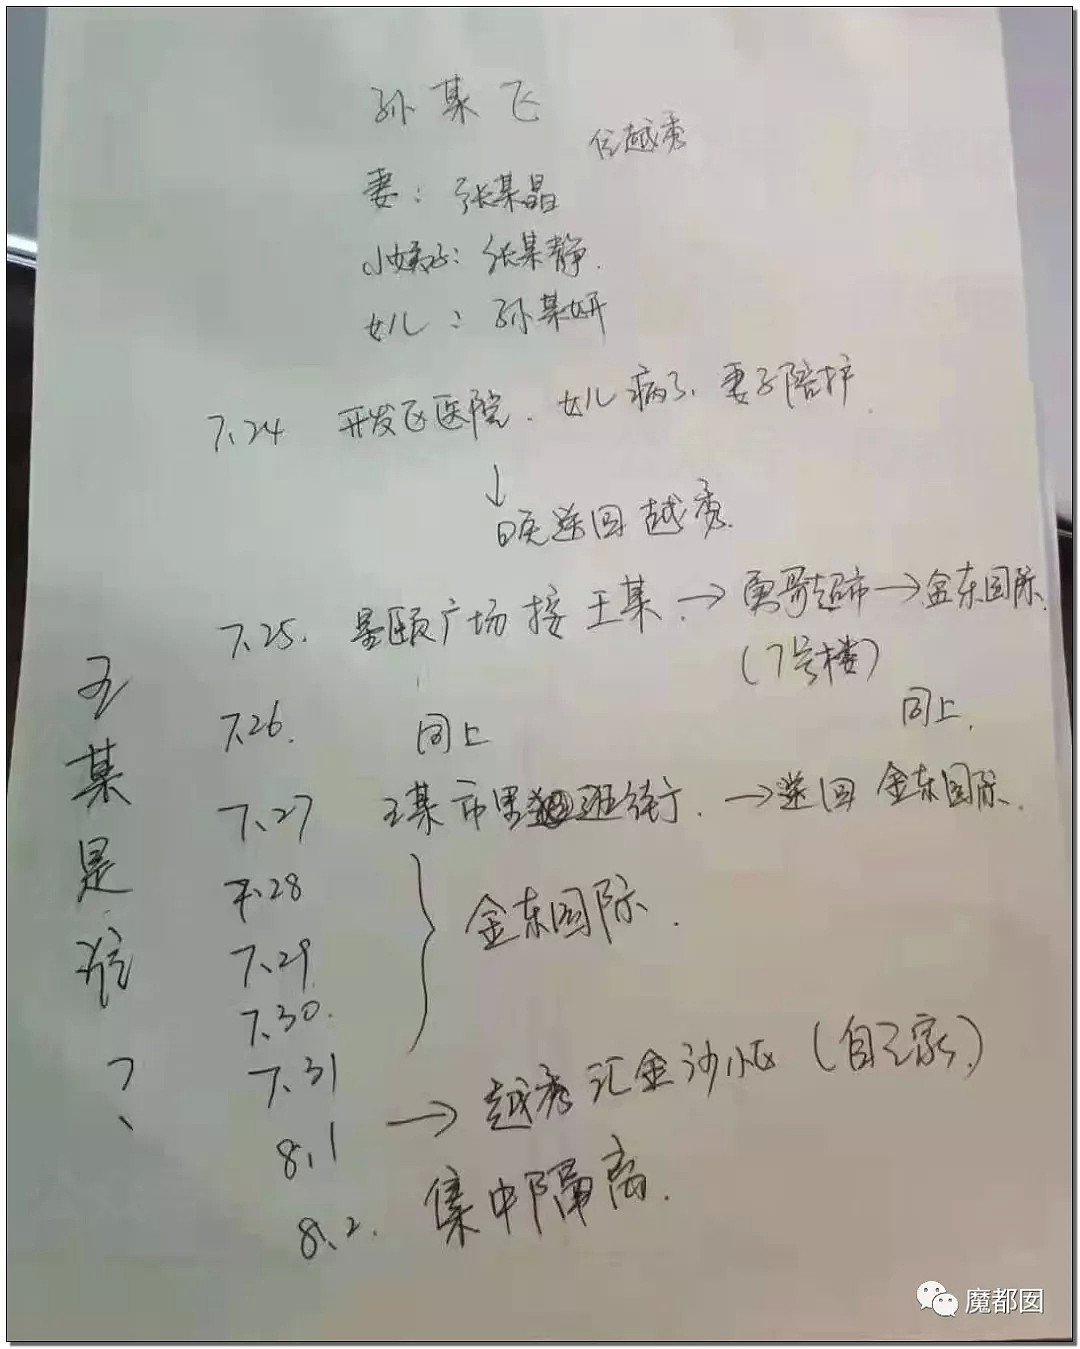 孙某飞
住越秀
妻：张某晶
小姨子：张某静.
女儿：孙某妍
7、24 开发区医院. 女儿病了、妻子陪护.
↓
送回越秀.
7、25. 景颐广场接王某.→勇哥超市→金东国际.
(7号楼)
7、26. 同上 同上.
7、27 王某市里 班 .→送回金东国际.
7、28
7、29
7、30.
7、31
金东国际.
8、1 →越秀汇金沙小区(自己家)
8、2. 集中隔离.
王某是谁？
魔都囡